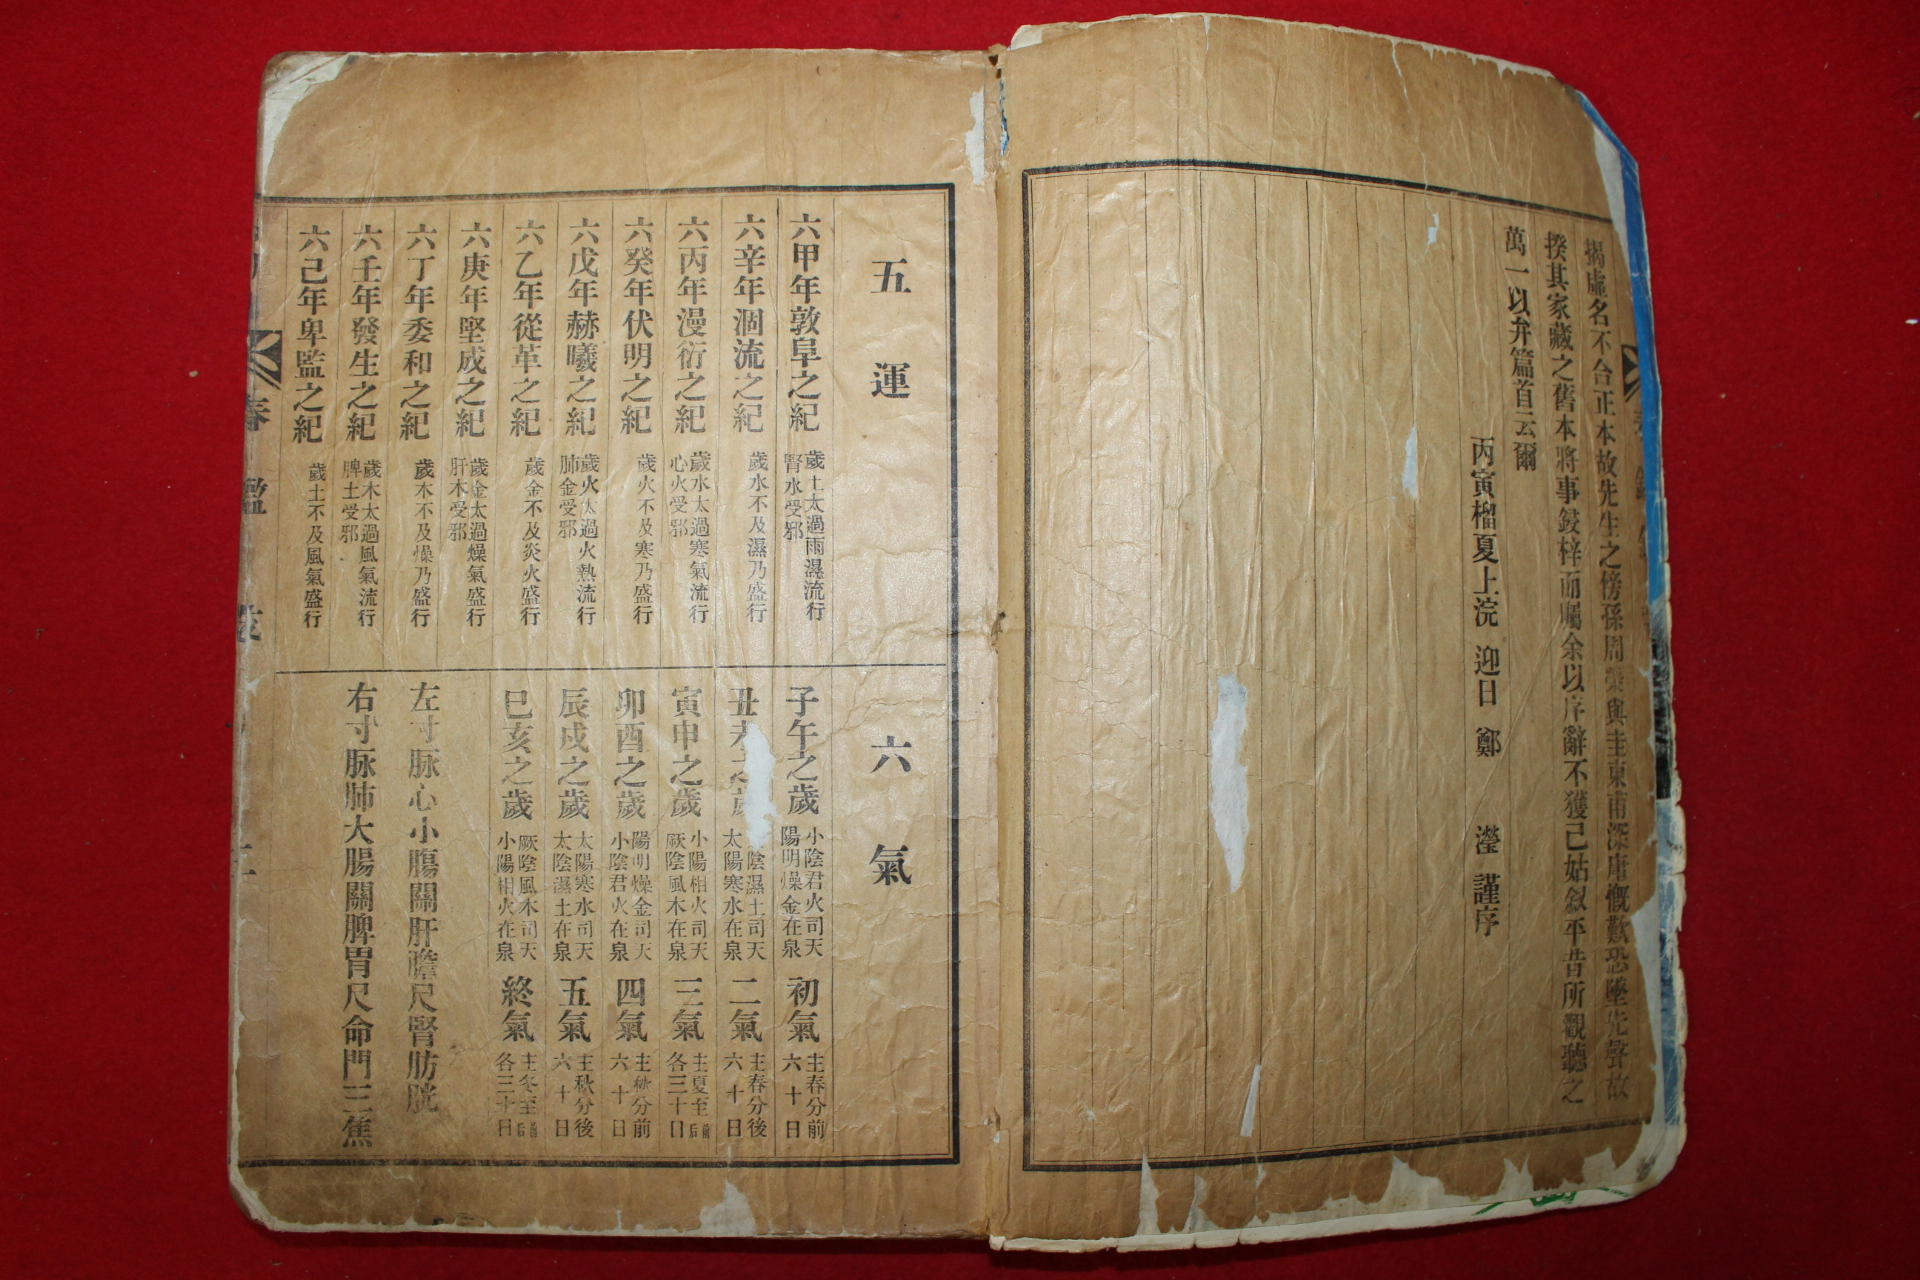 揭虛名不合正本故先生之傍孫周榮與圭東甫深庸慨歎恐墜先聲故
揆其家藏之舊本將事鋟梓而囑余以序辭不獲已姑敍平昔所觀聽之
萬一以弁篇首云爾
丙寅榴夏上浣 迎日 鄭 瀅 謹序
五運
六甲年敦阜之紀 歲土太過雨濕流行 腎水受邪
六辛年涸流之紀 歲水不及濕乃盛行
六丙年漫衍之紀 歲水太過寒氣流行 心火受邪
六癸年伏明之紀 歲火不及寒乃盛行
六戊年赫曦之紀 歲火太過火熱流行 肺金受邪
六乙年從革之紀 歲金不及炎火盛行
六庚年堅成之紀 歲金太過燥氣盛行 肝木受邪
六丁年委和之紀 歲木不及燥乃盛行
六壬年發生之紀 歲木太過風氣流行 脾土受邪
六己年卑監之紀 歲土不及風氣盛行
六氣
子午之歲 小陰君火司天 陽明燥金在泉 初氣 主春分前 六十日
丑未之歲 陰濕土司天 太陽寒水在泉 二氣 主春分後 六十日
寅申之歲 小陽相火司天 厥陰風木在泉 三氣 主夏至前后 各三十日
卯酉之歲 陽明燥金司天 小陰君火在泉 四氣 主秋分前 六十日
辰戌之歲 太陽寒水司天 太陰濕土在泉 五氣 主秋分後 六十日
巳亥之歲 厥陰風木司天 小陽相火在泉 終氣 主冬至前后 各三十日
左寸脉心小膓關肝膽尺腎肪胱
右寸脉肺大腸關脾胃尺命門三焦
春鑑